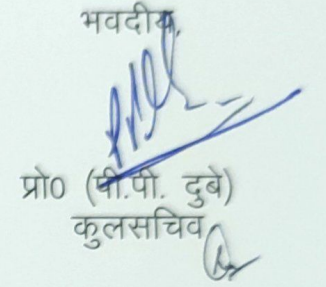 भवदीय,
प्रो0 (पी.पी. दुबे)
कुलसचिव